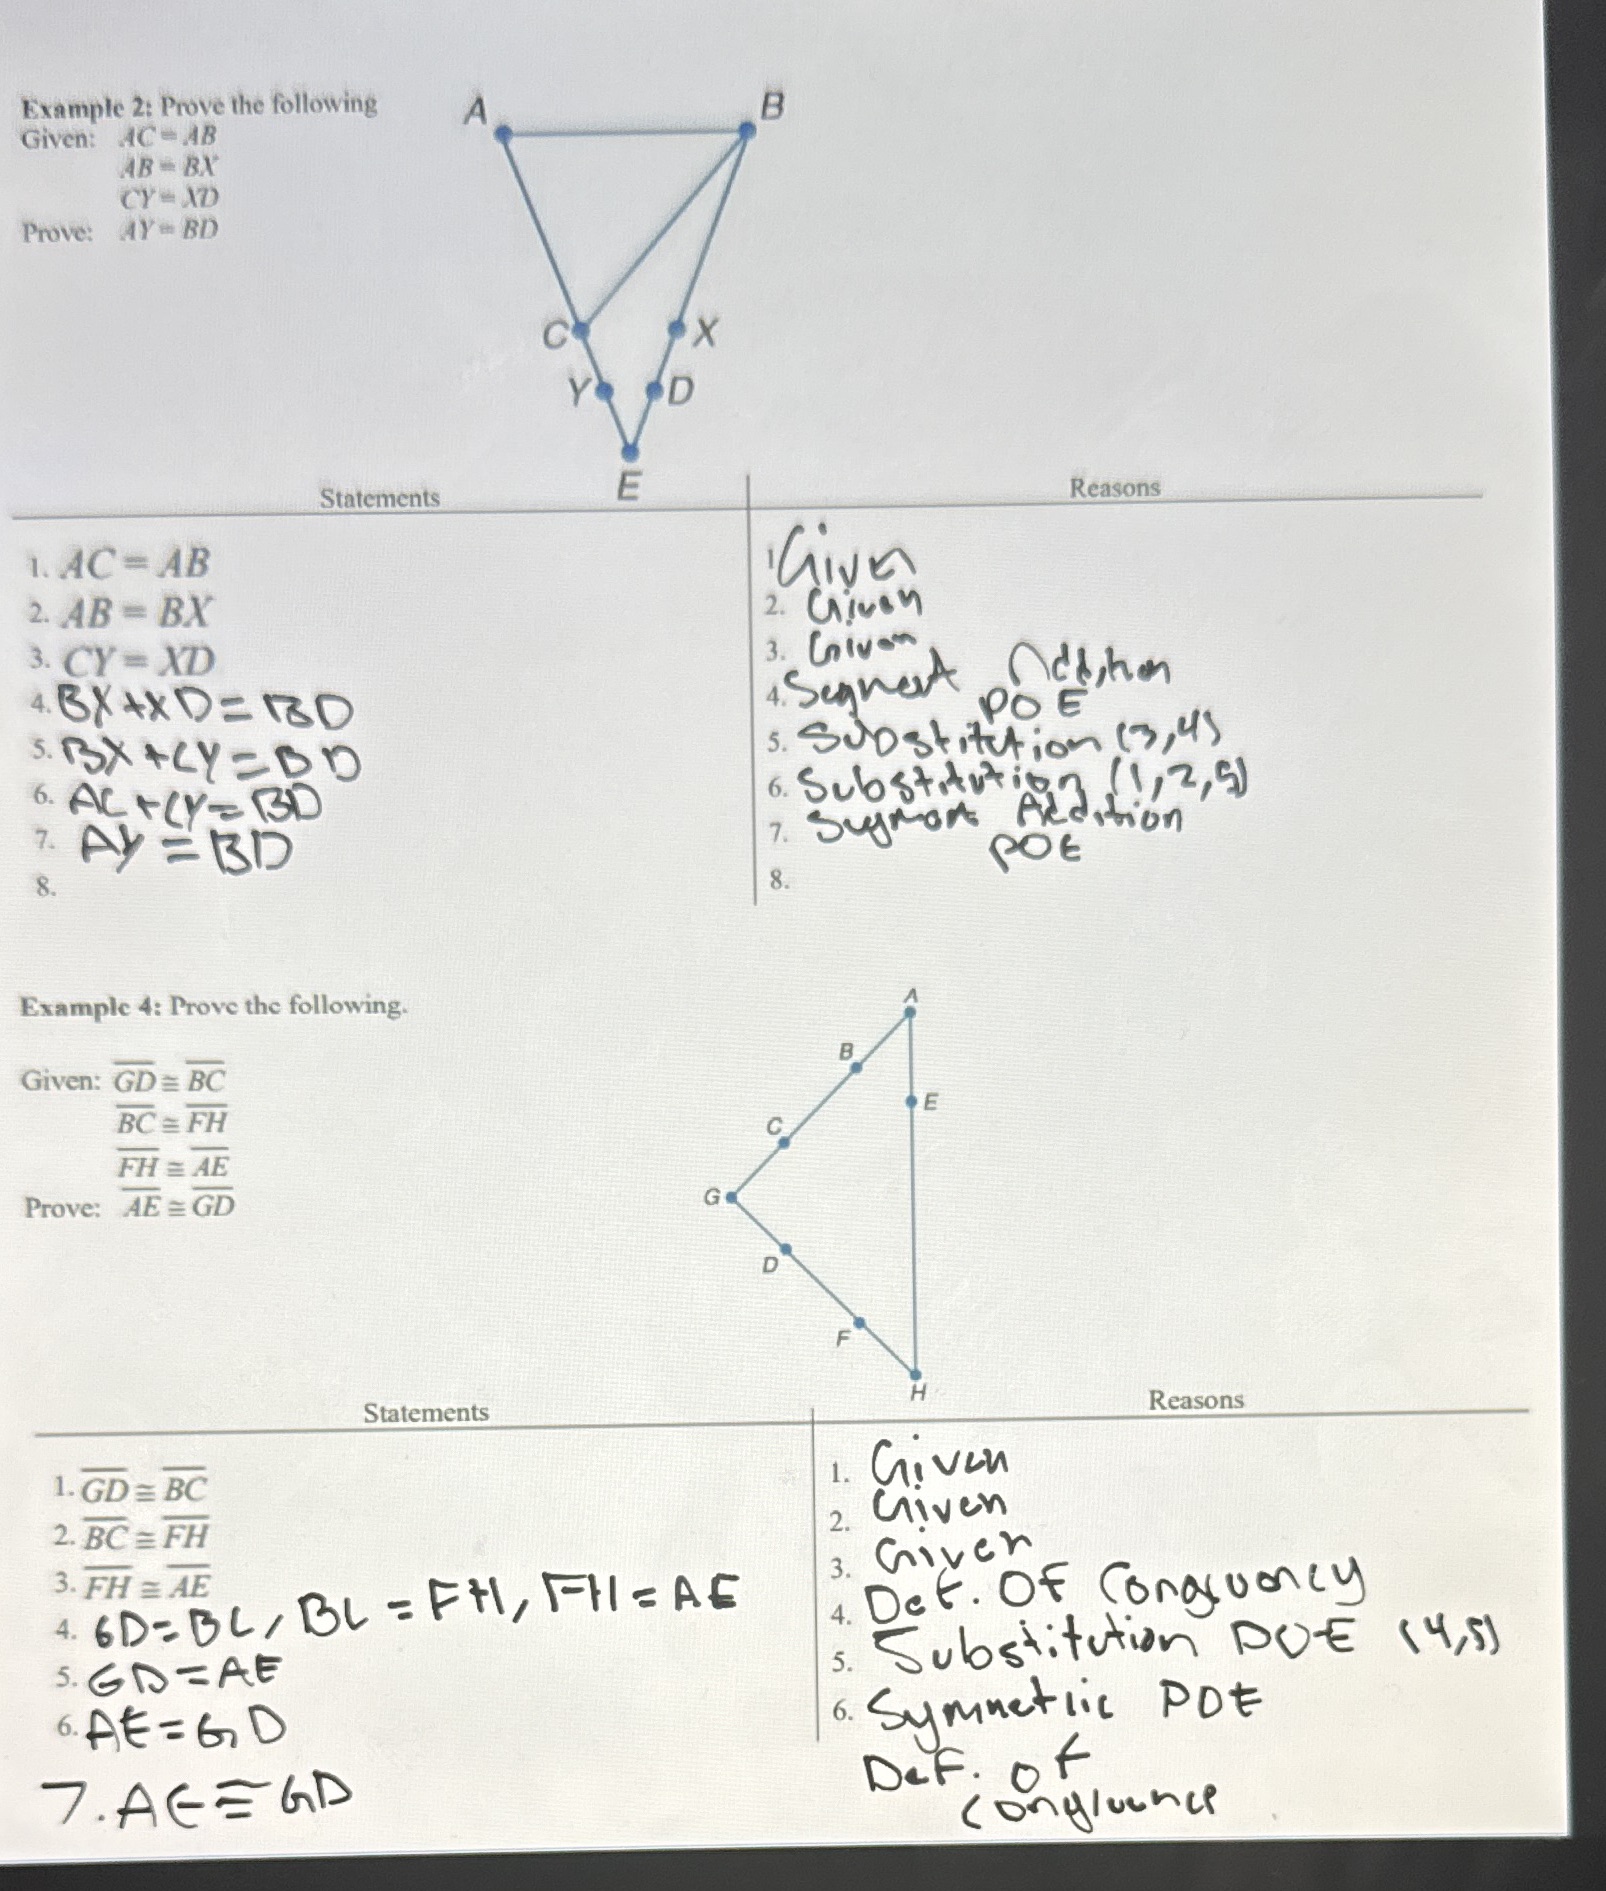 Example 2: Prove the following
Given: AC = AB
AB = BX
CY = XD
Prove: AY = BD
A
B
C
X
Y
D
E
Statements
Reasons
1. AC = AB
1. Given
2. AB = BX
2. Given
3. CY = XD
3. Given
4. BX + XD = BD
4. Segment Addition
POE
5. BX + CY = BD
5. Substitution (3,4)
6. AC + CY = BD
6. Substitution (1,2,5)
7. AY = BD
7. Segment Addition
POE
8.
8.
Example 4: Prove the following.
Given: GD ≅ BC
BC ≅ FH
FH ≅ AE
Prove: AE ≅ GD
A
B
E
C
G
D
F
H
Statements
Reasons
1. GD ≅ BC
1. Given
2. BC ≅ FH
2. Given
3. FH ≅ AE
3. Given
4. GD = BC, BC = FH, FH = AE
4. Def. Of Congruency
5. GD = AE
5. Substitution POE (4,5)
6. AE = GD
6. Symmetric POE
7. AE ≅ GD
Def. of
Congruence